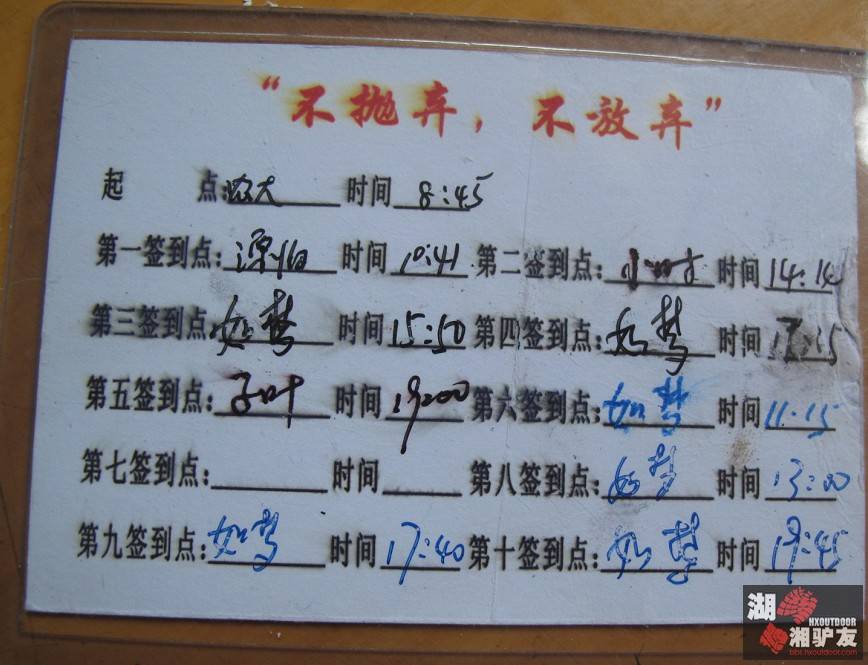 “不抛弃，不放弃”
起 点:农大 时间 8:45
第一签到点: 时间 10:41 第二签到点: 时间 14:14
第三签到点:如梦 时间 15:50 第四签到点:如梦 时间
第五签到点:子叶 时间 19:00 第六签到点:如梦 时间 11:15
第七签到点: 时间 第八签到点:如梦 时间 13:00
第九签到点:如梦 时间 17:40 第十签到点:如梦 时间 19:45
湖 HXOUTDOOR
湘驴友
bbs.hxoutdoor.com